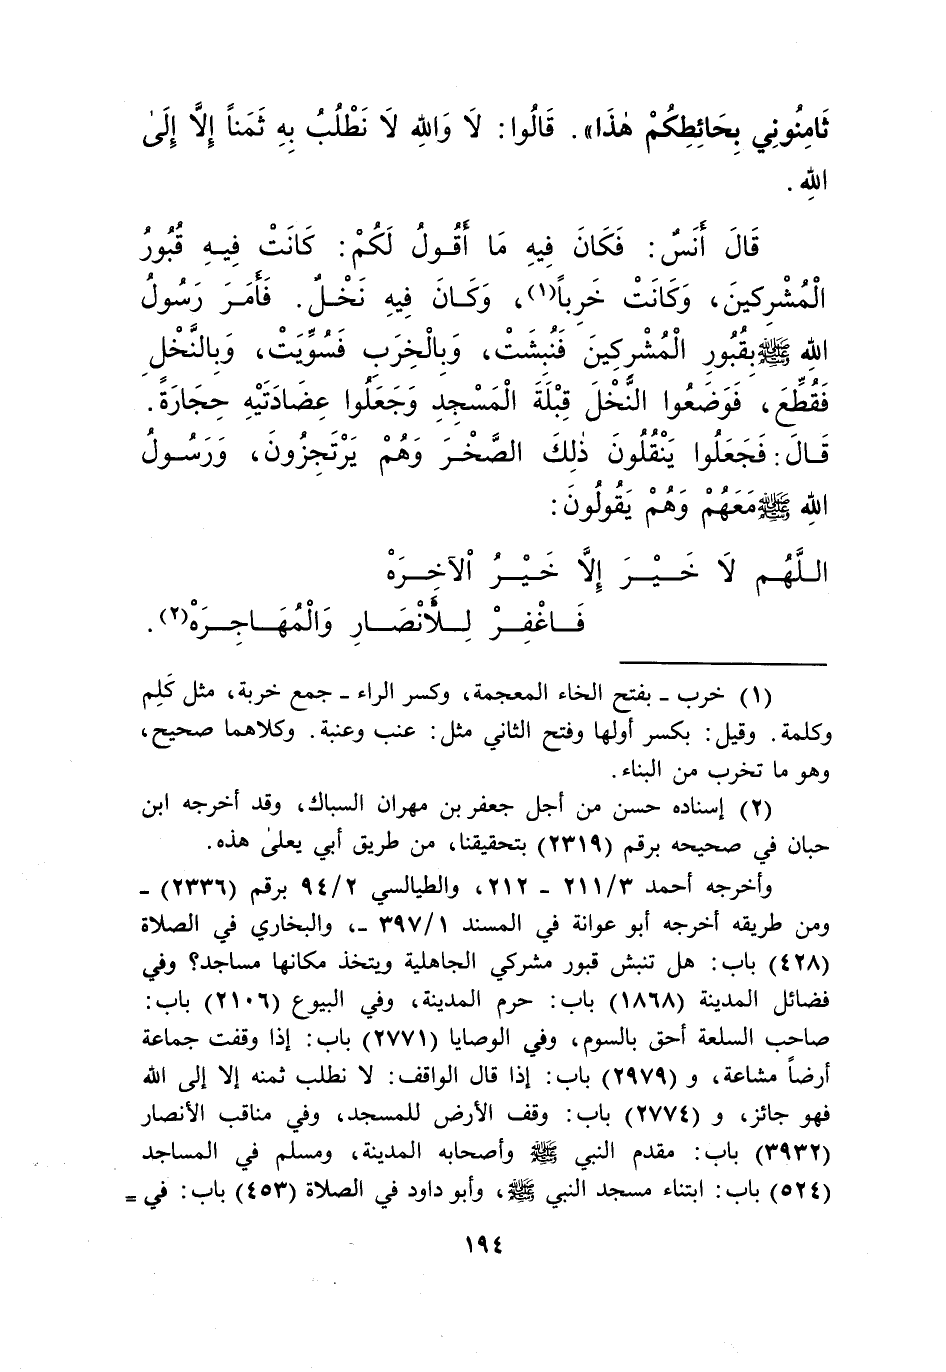 ثَامِنُونِي بِحَائِطِكُمْ هٰذَا». قَالُوا: لَا وَاللهِ لَا نَطْلُبُ بِهِ ثَمَناً إِلَّا إِلَىٰ
اللهِ.
قَالَ أَنَسٌ: فَكَانَ فِيهِ مَا أَقُولُ لَكُمْ: كَانَتْ فِيهِ قُبُورُ
الْمُشْرِكِينَ، وَكَانَتْ خَرِباً(١)، وَكَانَ فِيهِ نَخْلٌ. فَأَمَرَ رَسُولُ
اللهِ ﷺ بِقُبُورِ الْمُشْرِكِينَ فَنُبِشَتْ، وَبِالْخِرَبِ فَسُوِّيَتْ، وَبِالنَّخْلِ
فَقُطِّعَ، فَوَضَعُوا النَّخْلَ قِبْلَةَ الْمَسْجِدِ وَجَعَلُوا عِضَادَتَيْهِ حِجَارَةً.
قَالَ: فَجَعَلُوا يَنْقُلُونَ ذٰلِكَ الصَّخْرَ وَهُمْ يَرْتَجِزُونَ، وَرَسُولُ
اللهِ ﷺ مَعَهُمْ وَهُمْ يَقُولُونَ:
اللَّهُمِ لَا خَيْرَ إِلَّا خَيْرُ الْآخِرَهْ
فَاغْفِرْ لِلْأَنْصَارِ وَالْمُهَاجِرَهْ(٢).
(١) خرب ـ بفتح الخاء المعجمة، وكسر الراء ـ جمع خربة، مثل كَلِم
وكلمة. وقيل: بكسر أولها وفتح الثاني مثل: عنب وعنبة. وكلاهما صحيح،
وهو ما تخرب من البناء.
(٢) إسناده حسن من أجل جعفر بن مهران السباك، وقد أخرجه ابن
حبان في صحيحه برقم (٢٣١٩) بتحقيقنا، من طريق أبي يعلىٰ هذه.
وأخرجه أحمد ٢١١/٣ - ٢١٢، والطيالسي ٩٤/٢ برقم (٢٣٣٦) ـ
ومن طريقه أخرجه أبو عوانة في المسند ٣٩٧/١ ـ، والبخاري في الصلاة
(٤٢٨) باب: هل تنبش قبور مشركي الجاهلية ويتخذ مكانها مساجد؟ وفي
فضائل المدينة (١٨٦٨) باب: حرم المدينة، وفي البيوع (٢١٠٦) باب:
صاحب السلعة أحق بالسوم، وفي الوصايا (٢٧٧١) باب: إذا وقفت جماعة
أرضاً مشاعة، و (٢٩٧٩) باب: إذا قال الواقف: لا نطلب ثمنه إلا إلى الله
فهو جائز، و (٢٧٧٤) باب: وقف الأرض للمسجد، وفي مناقب الأنصار
(٣٩٣٢) باب: مقدم النبي ﷺ وأصحابه المدينة، ومسلم في المساجد
(٥٢٤) باب: ابتناء مسجد النبي ﷺ، وأبو داود في الصلاة (٤٥٣) باب: في =
١٩٤